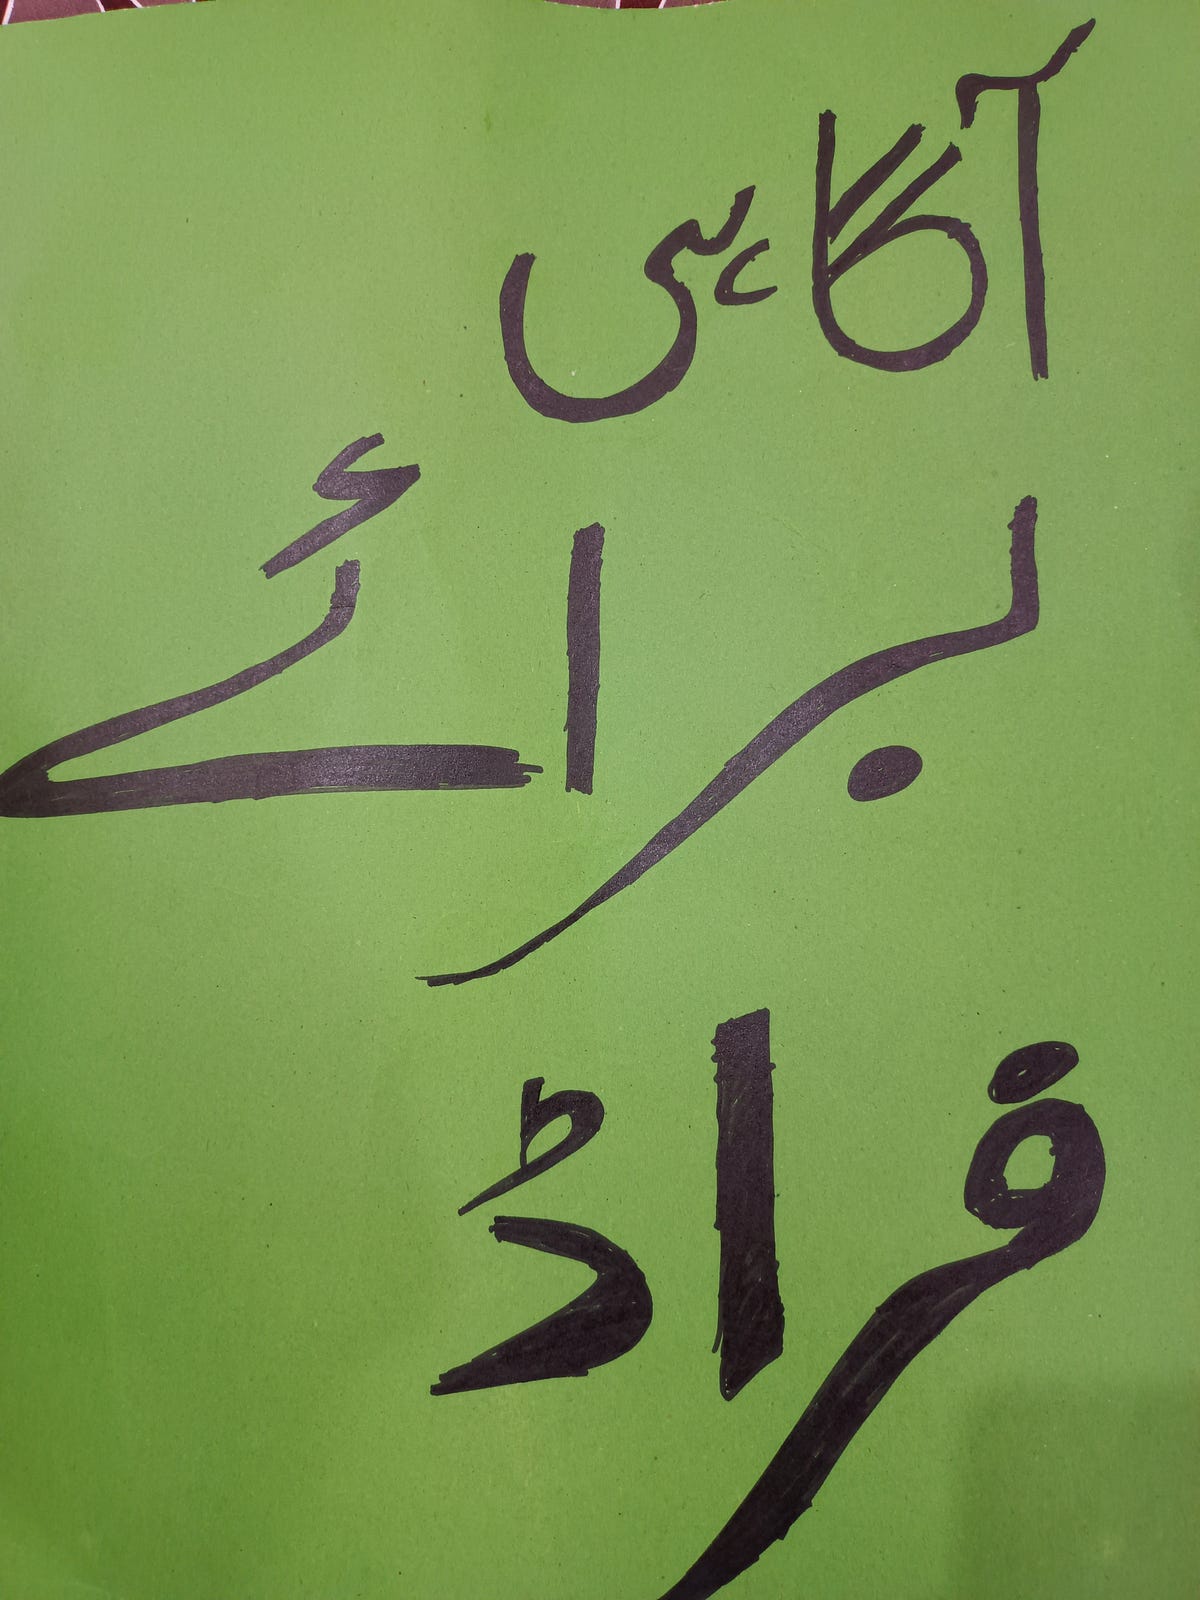 آگاہی
برائے
فراڈ